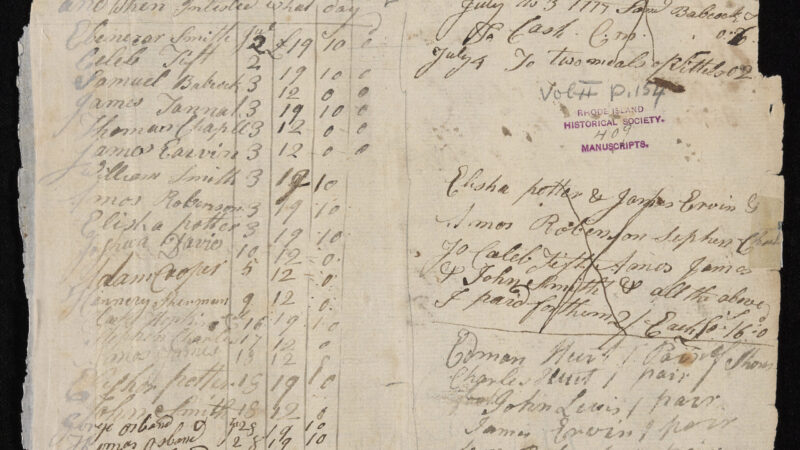 and when Inlisted what day
Ebenezar Smith 2 £19 10 0
Celeb Tift 2
Samuel Babcock 3 19 10 0
James Tannal 3 12 0 0
Thomas Chaple 3 19 10 0
James Earvin 3 12 0 0
William Smith 3 12 0 0
Amos Robenson 3 19 10
Elisha potter 3 19 10
Joshua Davis 10 19 10
Adam Cooper 5 12 0
Hennery Sherman 9 12 0
Hopkins 16 19 10
Stephen Charles 17 12 0
Amos James 18 12
Elisha potter 18 19 10
John Smith 18 12 0
George Osband 28 19 10
Thomos Osband 28 19 10
July 3 1777 Sam Babcock
To Cash
July 4 To two meals of Vittels 0 2
Vol II P. 154
RHODE ISLAND
HISTORICAL SOCIETY.
409
MANUSCRIPTS.
Elisha potter & James Ervin &
Amos Robenson Sephen
To Caleb Tift Amos James
& John Smith & all the above
I paid for them 2/ Each 16 0
Edman Hurt 1 Pair of Shoos
Charles Hurt 1 pair
John Lewis 1 pair
James Ervin 1 pair